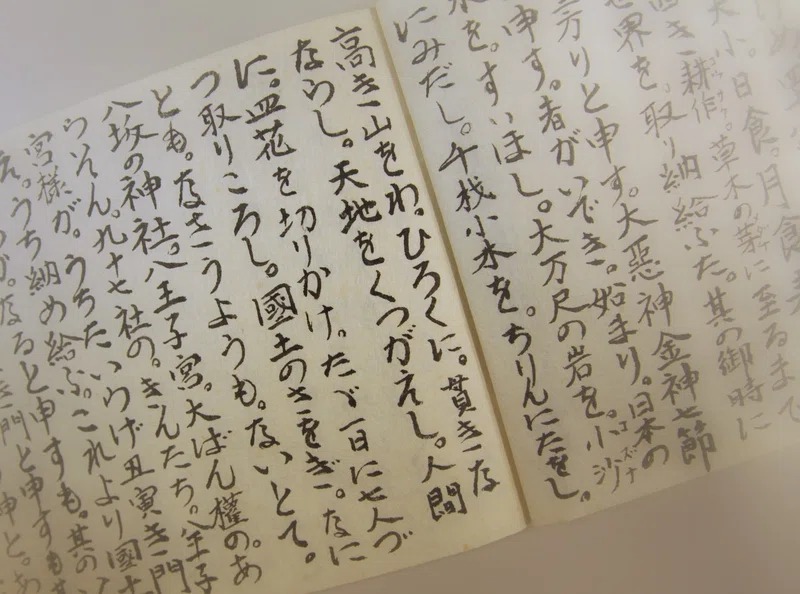 大小。日食。月食
き耕作。草木の芽に至るまで
世界を。取り納給ふた。其の御時に
方りと申す。大惡神金神七節
申す。者がいでき。始まり。日本の
水を。すいほし。大万尺の岩を。小沙
にみだし。千杈小木を。ちりんにたをし。
高き山をわ。ひろくに。貫きな
ならし。天地をくつがえし。人間
に。皿花を切りかけ。たゞ一日に七人づ
つ取りころし。國土のさをぎ。なに
とも。なさうようも。ないとて。
八坂の神社。八王子宮。大ばん權のあ
らそん。九十七社の。きんたち。八王子
宮様が。うちたいらげ丑寅き門
え。うち納め給ふ。これより國土
が。なると申すも。其の
門と申すも
神と。あ